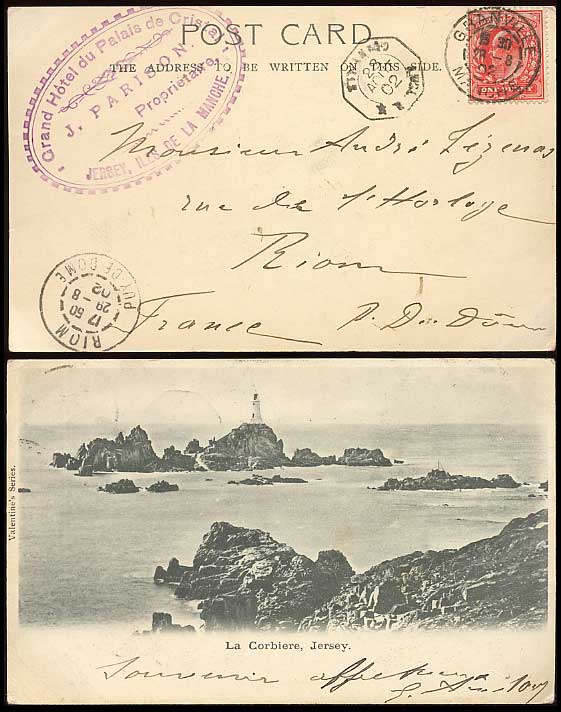 POST CARD
THE ADDRESS TO BE WRITTEN ON THIS SIDE.
Grand Hôtel du Palais de Cristal
J. PARISON.
Propriétaire
JERSEY, ILES DE LA MANCHE
GRANVILLE
28
02
Monsieur André Lézenas
rue de l'Horloge
Riom
France P. D
RIOM
17 50
29 - 8
02
PUY-DE-DOME
Valentine's Series.
La Corbiere, Jersey.
Souvenir affectueux